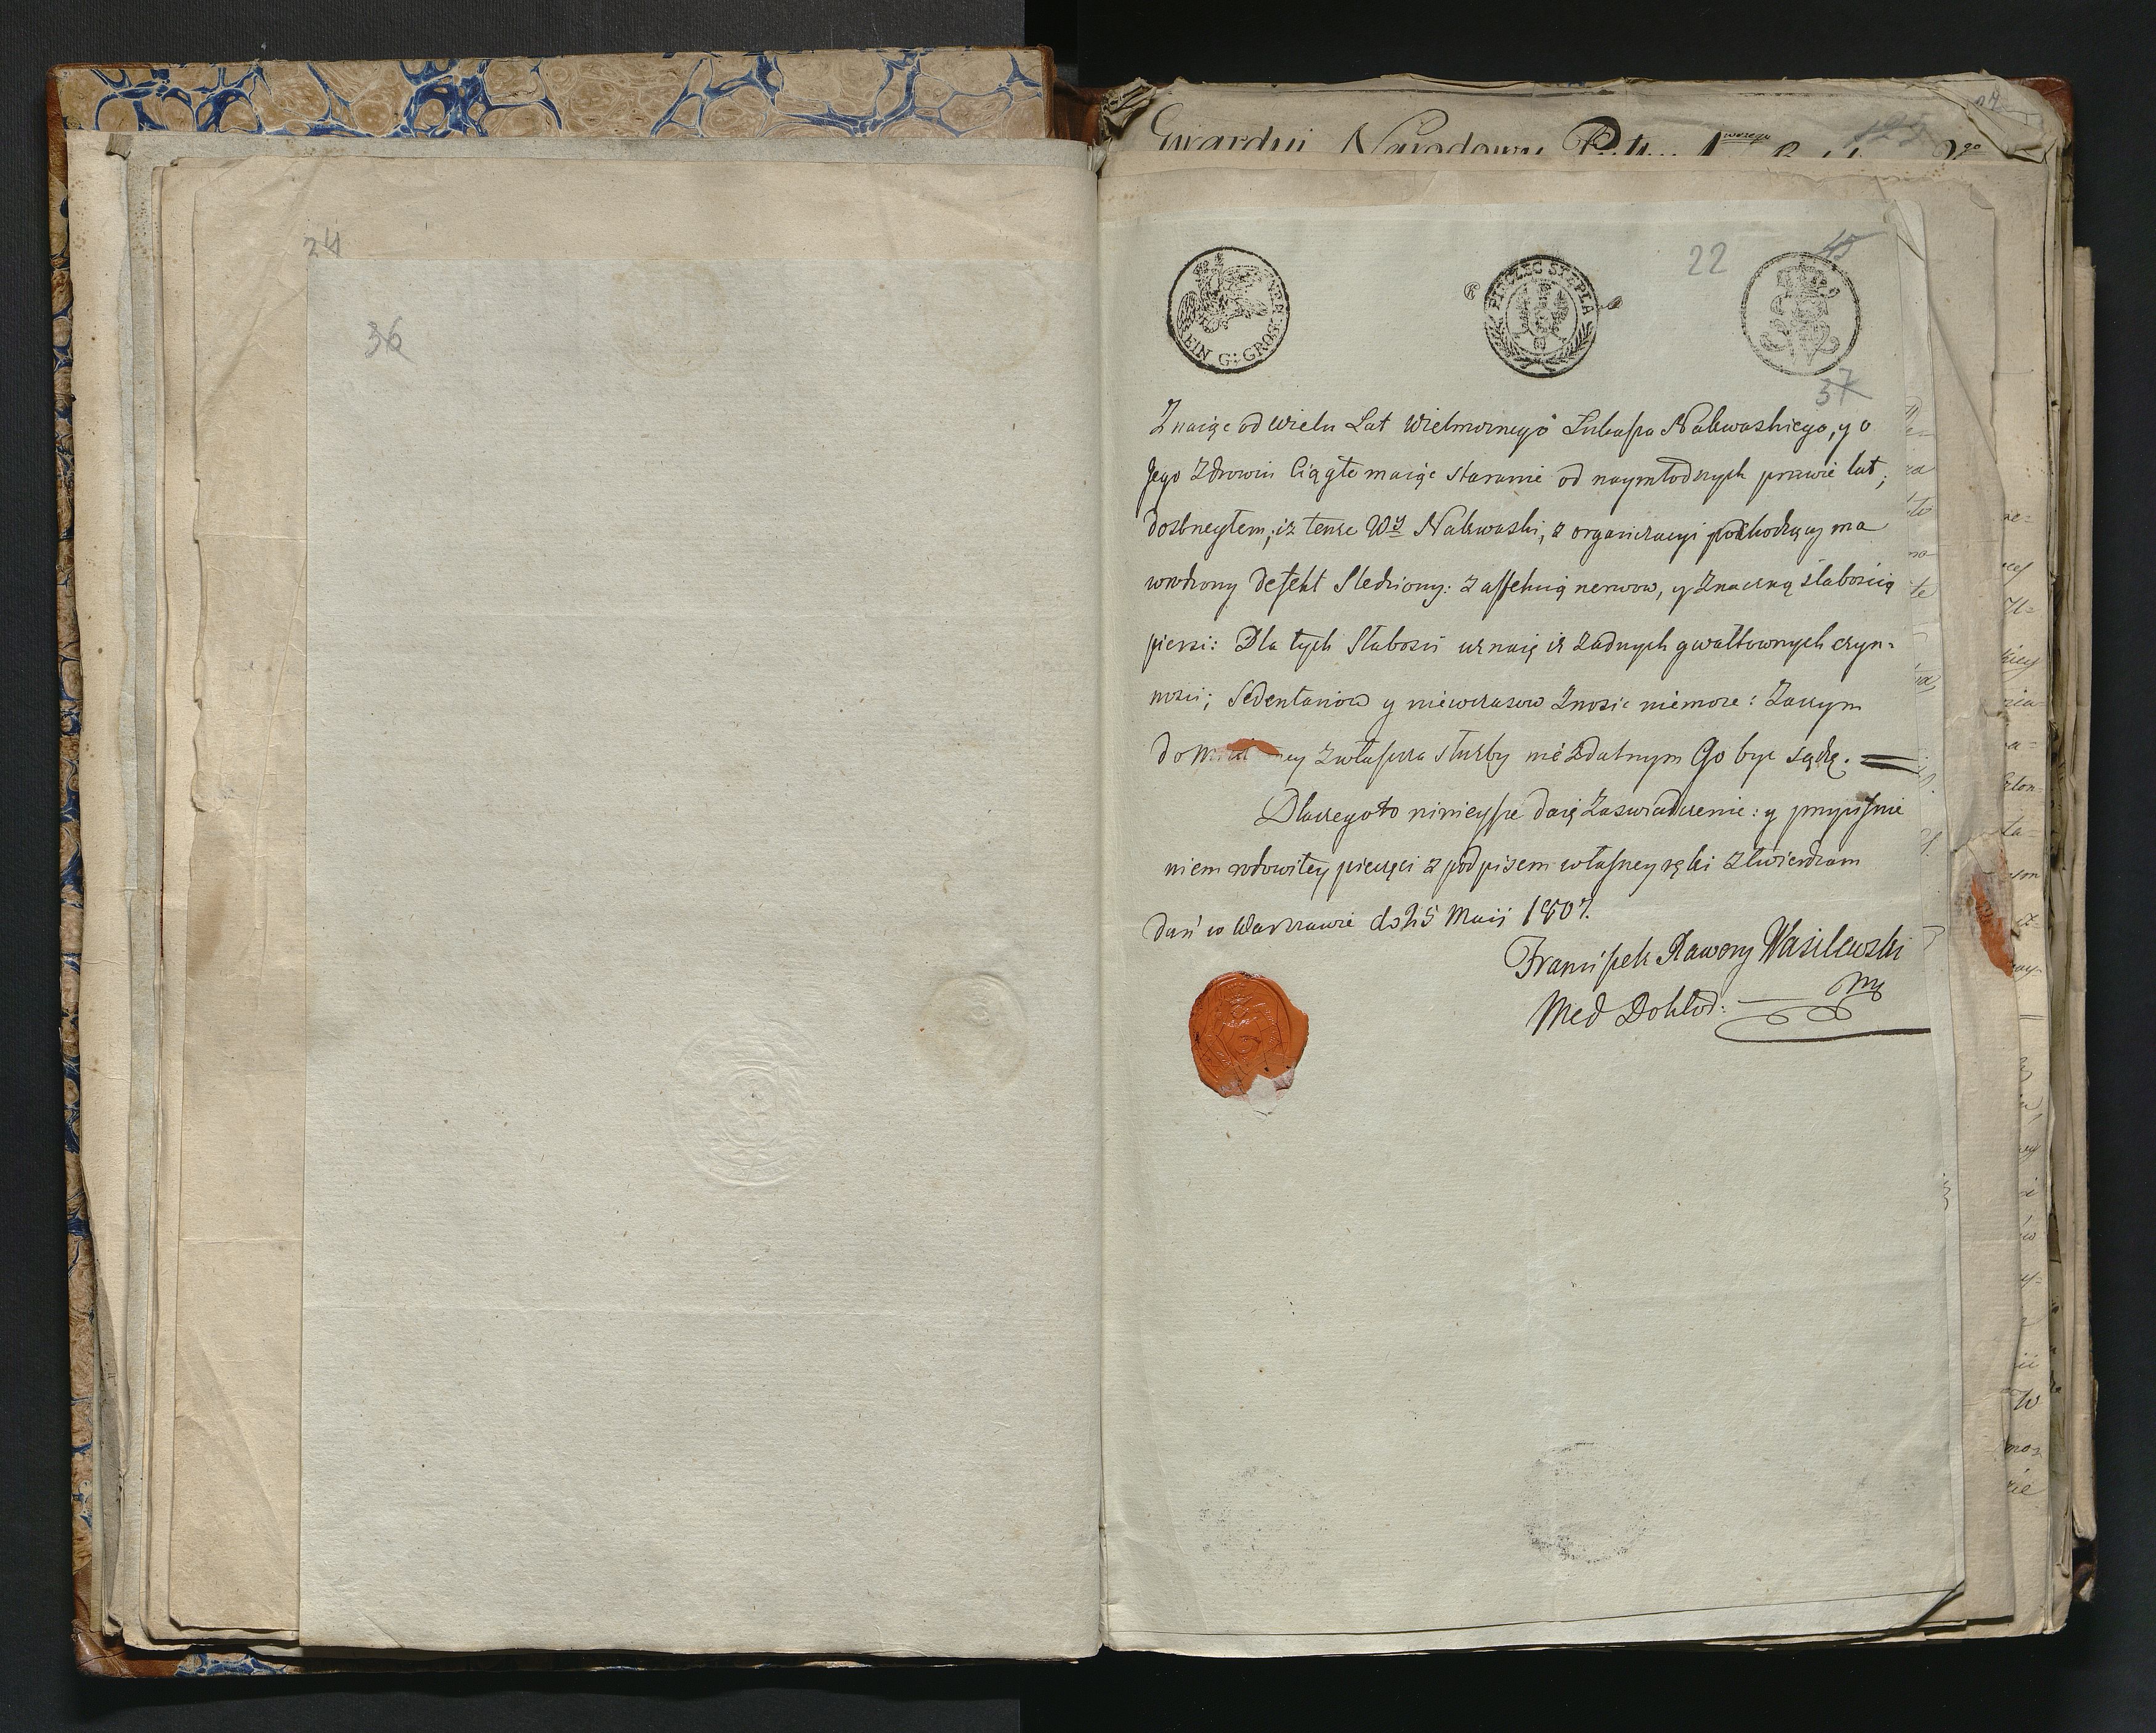 24
36
Gwardyi Narodowey
22
45
EIN G: GROSCHEN
PIECZEC STEPLA
37
Znaiąc od wielu Lat Wielmożnego Łukasza Nakwaskiego, y o
Jego Zdrowiu Ciągłe maiąc staranie od naymłodszych prawie lat,
dostrzegłem, iż tenże Wy Nakwaski, z organizacyi pochodzący ma
wrodzony defekt Sledziony: z affekcią nerwow, y Znaczną słabością
piersi: Dla tych Słabosci uznaię iż żadnych gwałtownych czyn-
nosci; Sedentariow y niewczasow Znosic niemoże: Zaczym
do zwłaszcza służby niezdatnym Go byc sądzę.
Dlaczego to ninieysze daię Zaswiadczenie: y przycisnie
niem rodowitey pieczęci z podpisem własney ręki ztwierdzam
dań w Warszawie d 25 Maii 1807.
Franciszek Xawery Wasilewski
Med Doktor: mp